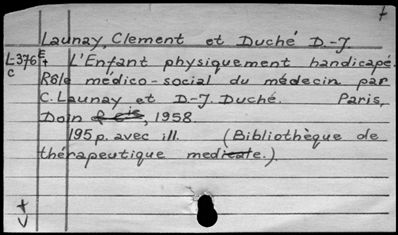 +
Launay, Clement et Duché D.-J.
L-376 E+ L'Enfant physiquement handicapé.
C Rôle médico-social du médecin par
C. Launay et D.-J. Duché. Paris,
Doin, 1958
195 p. avec ill. (Bibliothèque de
thérapeutique medicale.)
+
V